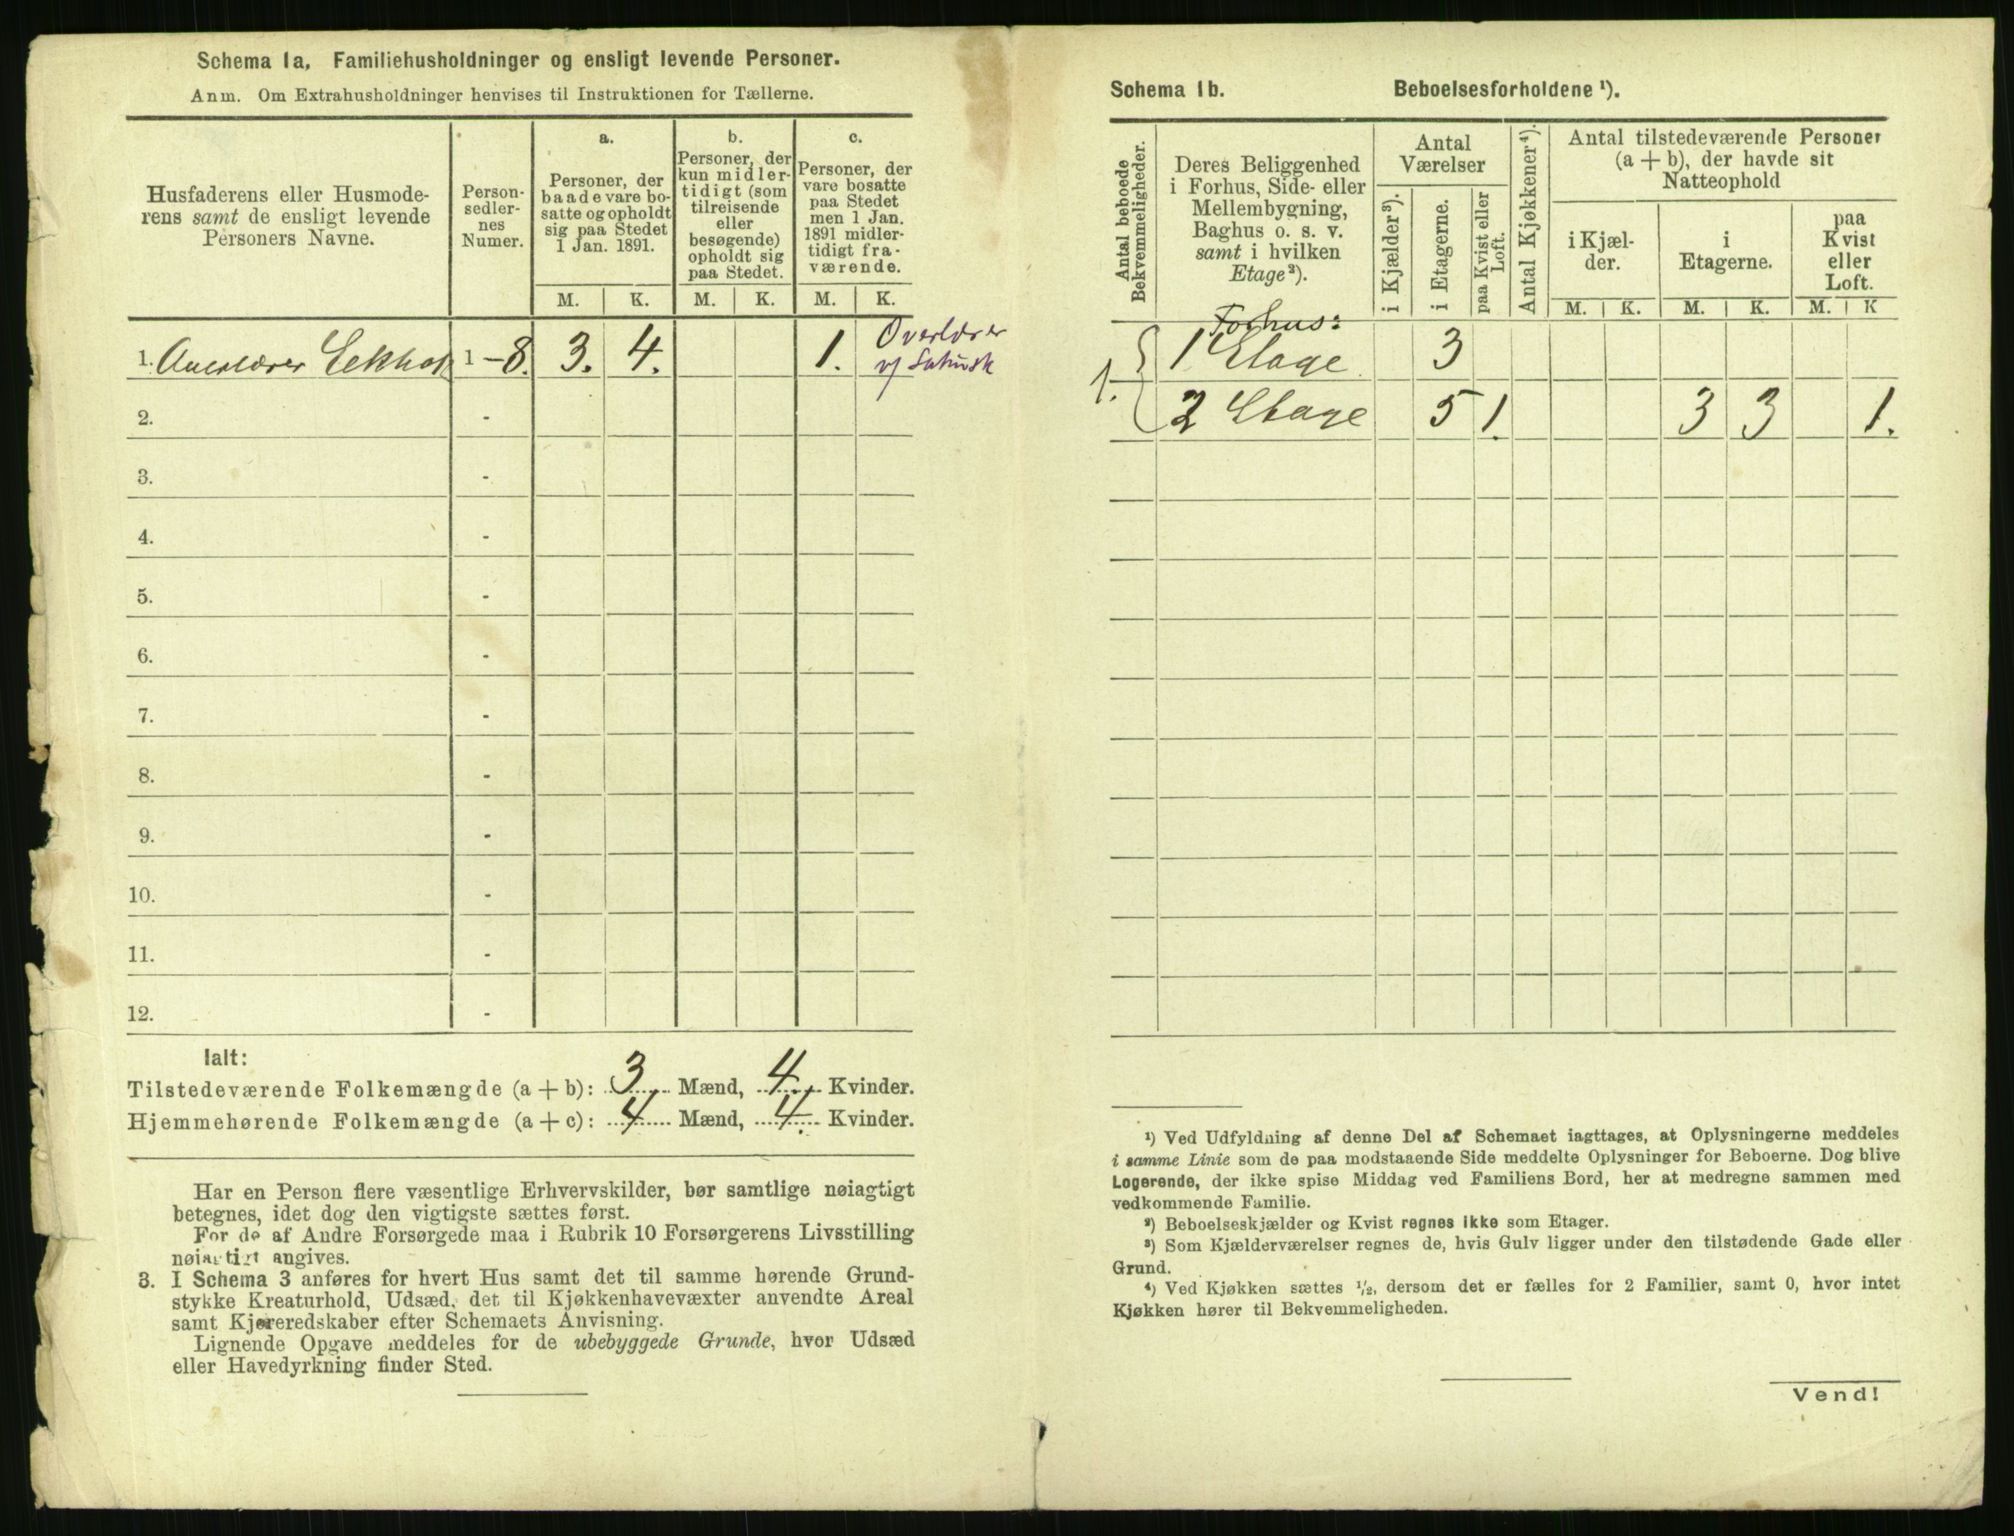 Schema 1a. Familiehusholdninger og ensligt levende Personer.
Anm. Om Extrahusholdninger henvises til Instruktionen for Tællerne.
Husfaderens eller Husmode-
rens samt de ensligt levende
Personers Navne.
Person-
sedler-
nes
Numer.
a.
Personer, der
baade vare bo-
satte og opholdt
sig paa Stedet
1 Jan. 1891.
M. K.
b.
Personer, der
kun midler-
tidigt (som
tilreisende
eller
besøgende)
opholdt sig
paa Stedet.
M. K.
c.
Personer, der
vare bosatte
paa Stedet
men 1 Jan.
1891 midler-
tidigt fra-
værende.
M. K.
1. Overlærer Eckhof 1-8. 3. 4. 1. Overlærer
2. -
3. -
4. -
5. -
6. -
7. -
8. -
9. -
10. -
11. -
12. -
Ialt:
Tilstedeværende Folkemængde (a + b): 3 Mænd, 4 Kvinder.
Hjemmehørende Folkemængde (a + c): 4 Mænd, 4. Kvinder.
Har en Person flere væsentlige Erhvervskilder, bør samtlige nøiagtigt
betegnes, idet dog den vigtigste sættes først.
For de af Andre Forsørgede maa i Rubrik 10 Forsørgerens Livsstilling
nøiagtigt angives.
3. I Schema 3 anføres for hvert Hus samt det til samme hørende Grund-
stykke Kreaturhold, Udsæd, det til Kjøkkenhavevæxter anvendte Areal
samt Kjøreredskaber efter Schemaets Anvisning.
Lignende Opgave meddeles for de ubebyggede Grunde, hvor Udsæd
eller Havedyrkning finder Sted.
Schema 1b. Beboelsesforholdene ¹).
Antal beboede
Bekvemmeligheder.
Deres Beliggenhed
i Forhus, Side- eller
Mellembygning,
Baghus o. s. v.
samt i hvilken
Etage²).
Antal
Værelser
i Kjælder³).
i Etagerne.
paa Kvist eller
Loft.
Antal Kjøkkener⁴).
Antal tilstedeværende Personer
(a + b), der havde sit
Natteophold
i Kjæl-
der.
i
Etagerne.
paa
Kvist
eller
Loft.
M. K. M. K. M. K
Forhus:
1 Etage 3
1.
2 Etage 5 1. 3 3 1.
¹) Ved Udfyldning af denne Del af Schemaet iagttages, at Oplysningerne meddeles
i samme Linie som de paa modstaaende Side meddelte Oplysninger for Beboerne. Dog blive
Logerende, der ikke spise Middag ved Familiens Bord, her at medregne sammen med
vedkommende Familie.
²) Beboelseskjælder og Kvist regnes ikke som Etager.
³) Som Kjælderværelser regnes de, hvis Gulv ligger under den tilstødende Gade eller
Grund.
⁴) Ved Kjøkken sættes ¹/₂, dersom det er fælles for 2 Familier, samt 0, hvor intet
Kjøkken hører til Bekvemmeligheden.
Vend!